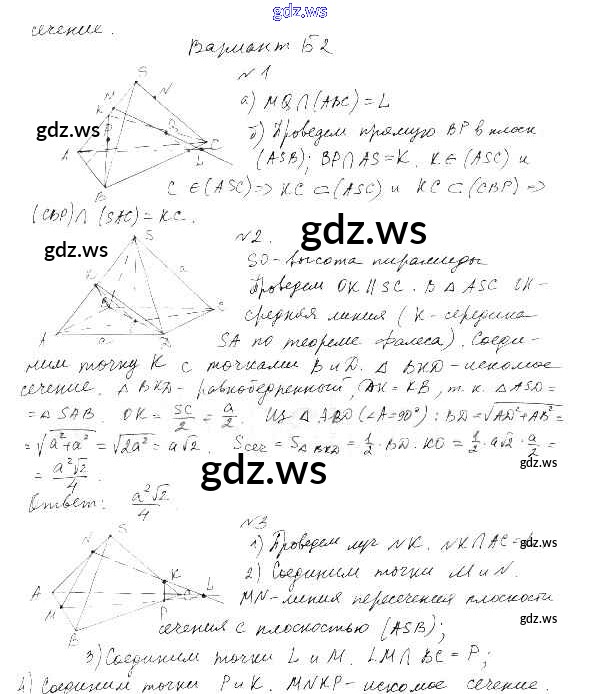 gdz.ws
сечение.
Вариант Б2
№1
а) MQ∩(ABC)=L
б) Проведем прямую BP в плоск
(ASB); BP∩AS=K. K∈(ASC) и
C∈(ASC)=>KC⊂(ASC) и KC⊂(CBP)=>
(CBP)∩(SAC)=KC.
gdz.ws
gdz.ws
gdz.ws
gdz.ws
№2.
SO-высота пирамиды
Проведем OK∥SC. В △ASC OK-
средняя линия (K-середина
SA по теореме Фалеса). Соеди-
ним точку K с точками B и D. △BKD-искомое
сечение. △BKD-равнобедренный, DK=KB, т.к. △ASD=
=△SAB. OK=SC/2=a/2. Из △ABD(∠A=90°): BD=√AD²+AB²=
=√a²+a²=√2a²=a√2. Sсеч=S△BKD=1/2·BD·KO=1/2·a√2·a/2=
=a²√2/4.
gdz.ws
gdz.ws
Ответ: a²√2/4.
№3
1) Проведем луч NK. NK∩AC=L
2) Соединим точки M и N.
MN-линия пересечения плоскости
сечения с плоскостью (ASB);
3) Соединим точки L и M. LM∩BC=P;
4) Соединим точки P и K. MNKP-искомое сечение.
gdz.ws
gdz.ws
gdz.ws